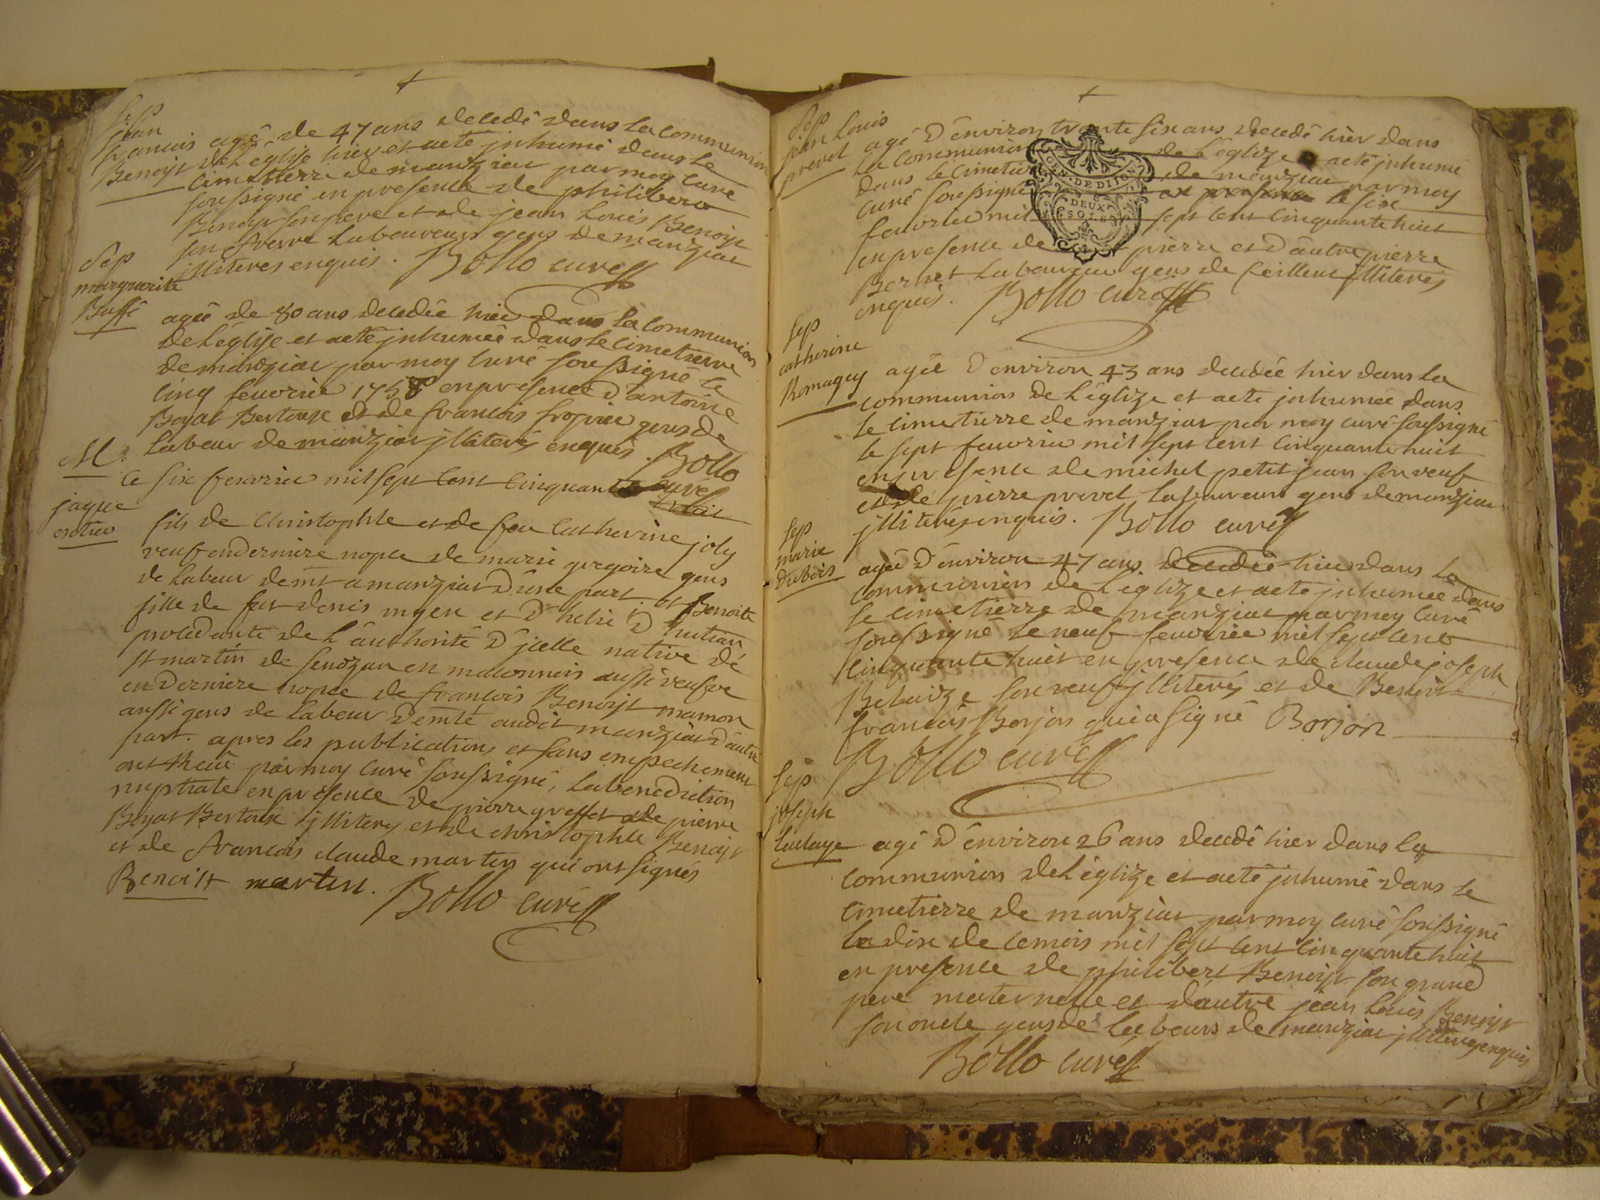 Sep
jean
francois agé de 47 ans decedé dans la communion
Benoist de l'églize hier et acté jnhumé dans le
cimettiere de manziat par moy curé
soussigné en presence de philibert
Benoist son pere et de jean Louis Benoist
son frerre laboureurs gens de manziat
jlliterés enquis. Bollo curé
Sep
marguerite
Buffi
ageé de 80 ans decedée hier dans la communion
de l'églize et aeté jnhumeé dans le cimetierre
de manziat par moy curé soussigné le
cinq feuvrier 1758 en presence d'antoine
Boyat Bertoux et de francois gens de
labeur de manziat jlliterés enquis. Bollo
curé
M.
Ce six feuvrier mil sept cent cinquante huit
jaque
fils de Christophle et de feu Catherine joly
veuf en derniere nopce de marie gregoire gens
de labeur demt a manziat d'une part et Benoite
fille de fut denis et d'
procedante de l'authorité d'jcelle native de
st martin de senozan en maconnois aussi veufve
en derniere nopce de francois Benoist mamon
aussi gens de labeur demte audit manziat d'autre
part. apres les publications et sans empechement
ont receu par moy curé soussigné, la benediction
nuptiale en presence de pierre greffet et de pierre
Boyat Bertoux jlliterés et de christophle Benoist
et de francois claude martin qui ont signés
Benoist martin. Bollo curé
Sep
jean Louis
prevel agé d'environ trante six ans decedé hier dans
la Communion de l'églize acté jnhumé
dans le cimetierre de manziat par moy
curé soussigné en presence le six
feuvrier mil sept cent cinquante huit
en presence de pierre et d'autre pierre
Berthet laboureur gens de feillens jlliterés
enquis. Bollo curé
GEN. DE DIJON
DEUX
SOLS
Sep
catherine
Romagey ageé d'environ 43 ans decedée hier dans la
communion de l'églize et aeté jnhumee dans
le cimetierre de manziat par moy curé soussigné
le sept feuvrier mil sept cent cinquante huit
en presence de michel petit jean son veuf
et de pierre prevel laboureurs gens de manziat
jlliterés enquis. Bollo curé
Sep
marie
dubois ageé d'environ 47 ans decedée hier dans la
communion de l'églize et aeté jnhumeé dans
le cimetierre de manziat par moy curé
soussigné le neuf feuvrier mil sept cent
cinquante huit en presence de claude joseph
Belaize son veuf jlliterés et de Benoist
francois Borjon qui a signé Borjon
Bollo curé
Sep
joseph
agé d'environ 26 ans decedé hier dans la
communion de l'églize et aeté jnhumé dans le
cimetierre de manziat par moy curé soussigné
le dix de cemois mil sept cent cinquante huit
en presence de philibert Benoist son grand
pere maternelle et d'autre jean Louis Benoist
son oncle gens de labeurs de manziat jlliterés enquis
Bollo curé